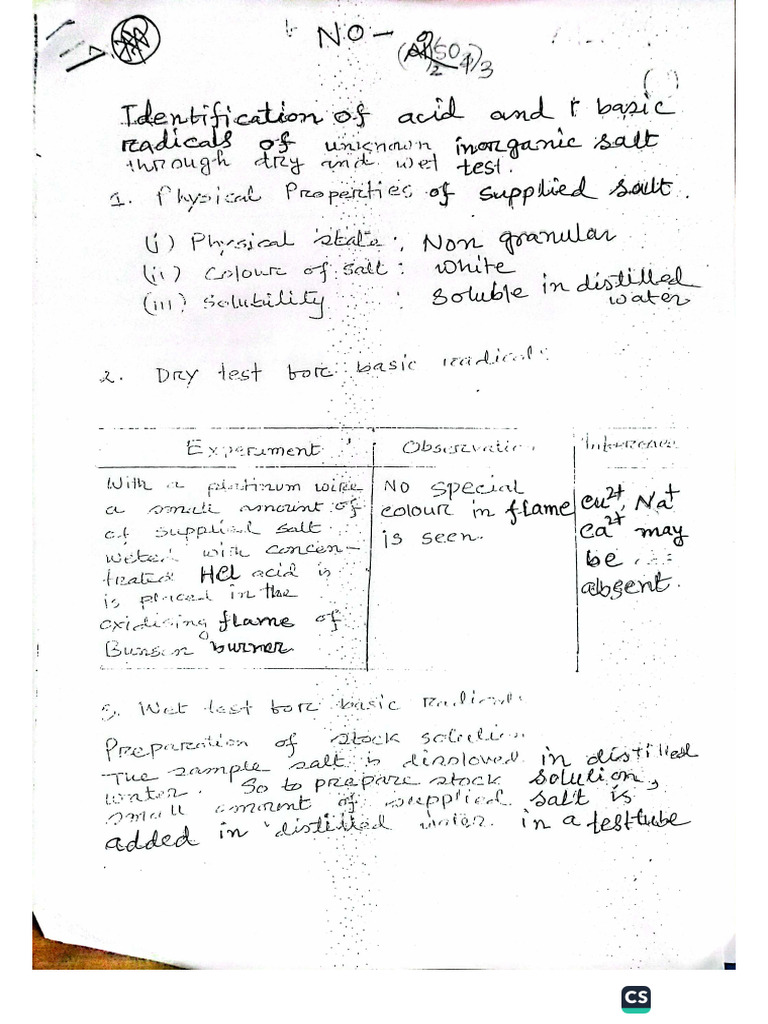 NO -
(Al)2(SO4)3
Identification of acid and basic
radicals of unknown inorganic salt
through dry and wet test.
1. Physical Properties of supplied salt.
(i) Physical state: Non granular
(ii) Colour of salt: White
(iii) Solubility : Soluble in distilled
water
2. Dry test for basic radicals
Experiment Observation Inference
With a platinum wire
a small amount of
of supplied salt
weted with concen-
trated HCl acid is
is placed in the
oxidising flame of
Bunsen burner
No special
colour in flame
is seen.
Cu2+, Na+
Ca2+ may
be
absent.
3. Wet test for basic radicals
Preparation of stock solution
The sample salt is disolved in distilled
water. So to prepare stock solution,
small amount of supplied salt is
added in distilled water in a testtube
CS